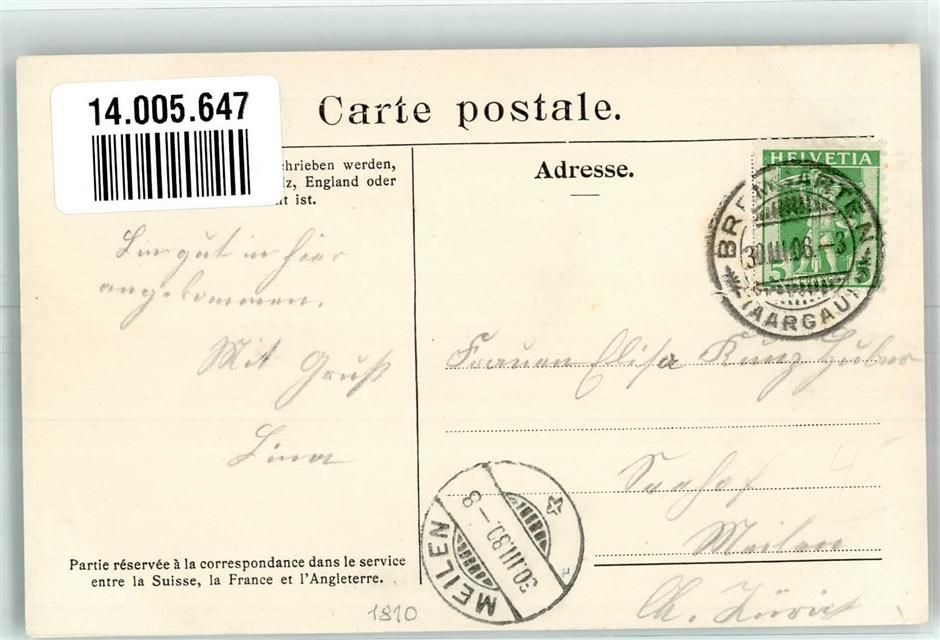 14.005.647
Carte postale.
chrieben werden,
iz, England oder
t ist.
Adresse.
HELVETIA
5
BREMGARTEN
30.III.08.–3
(AARGAU)
Bin gut in hier
angekommen.
Mit Gruß
Lina
Frauen Elisa Kunz Huber
Seehof
Meilen
Ct. Zürich
MEILEN
30.III.08–8
Partie réservée à la correspondance dans le service
entre la Suisse, la France et l'Angleterre.
1810